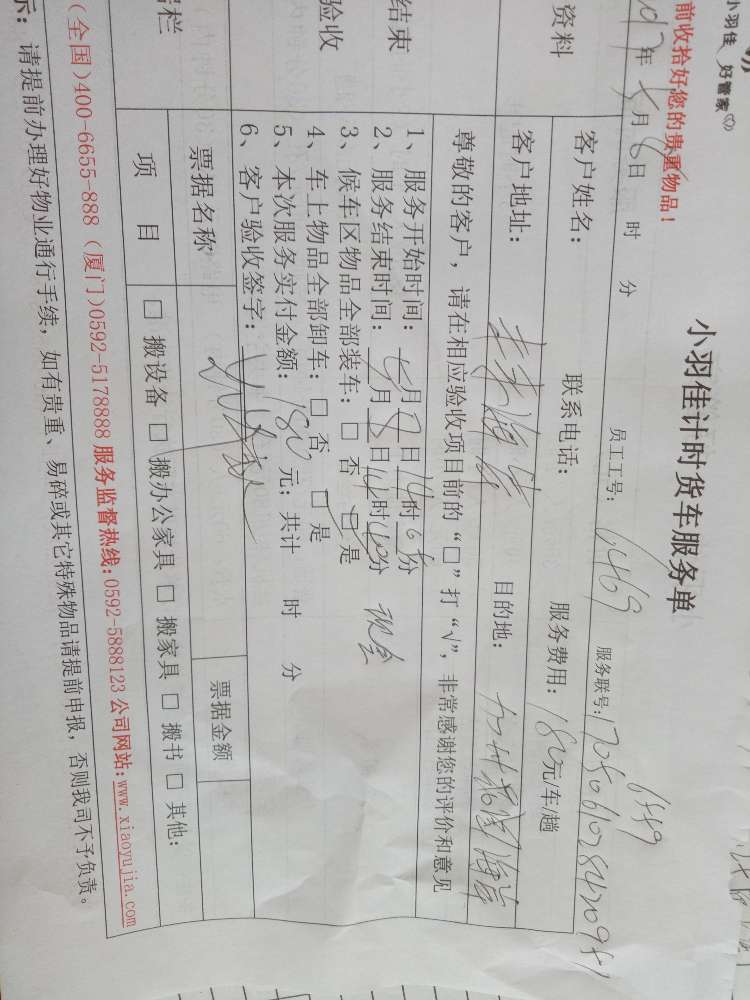 小羽佳 好管家
小羽佳计时货车服务单
前收拾好您的贵重物品！
年 月 日 时 分 员工工号：6469 服务联号：
资料
客户姓名： 联系电话： 服务费用：180元/车/趟
客户地址： 目的地：
尊敬的客户，请在相应验收项目前的“□”打“√”，非常感谢您的评价和意见
结束
验收
1、服务开始时间： 月 日 时 分
2、服务结束时间： 月 日 时 分 现金
3、候车区物品全部装车：□ 否 □ 是
4、车上物品全部卸车：□ 否 □ 是
5、本次服务实付金额：180元；共计 时 分
6、客户验收签字：
栏
票据名称 票据金额
项 目 □ 搬设备 □ 搬办公家具 □ 搬家具 □ 搬书 □ 其他：
(全国)400-6655-888 (厦门)0592-5178888 服务监督热线：0592-5888123 公司网站：www.xiaoyujia.com
示：请提前办理好物业通行手续，如有贵重、易碎或其它特殊物品请提前申报，否则我司不予负责。